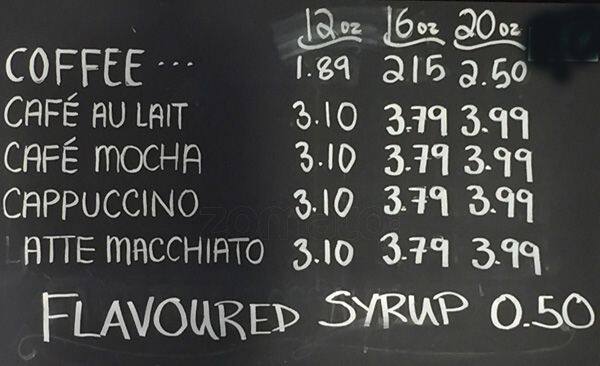 12oz 16oz 20oz
COFFEE ... 1.89 215 2.50
CAFÉ AU LAIT 3.10 3.79 3.99
CAFÉ MOCHA 3.10 3.79 3.99
CAPPUCCINO 3.10 3.79 3.99
LATTE MACCHIATO 3.10 3.79 3.99
FLAVOURED SYRUP 0.50